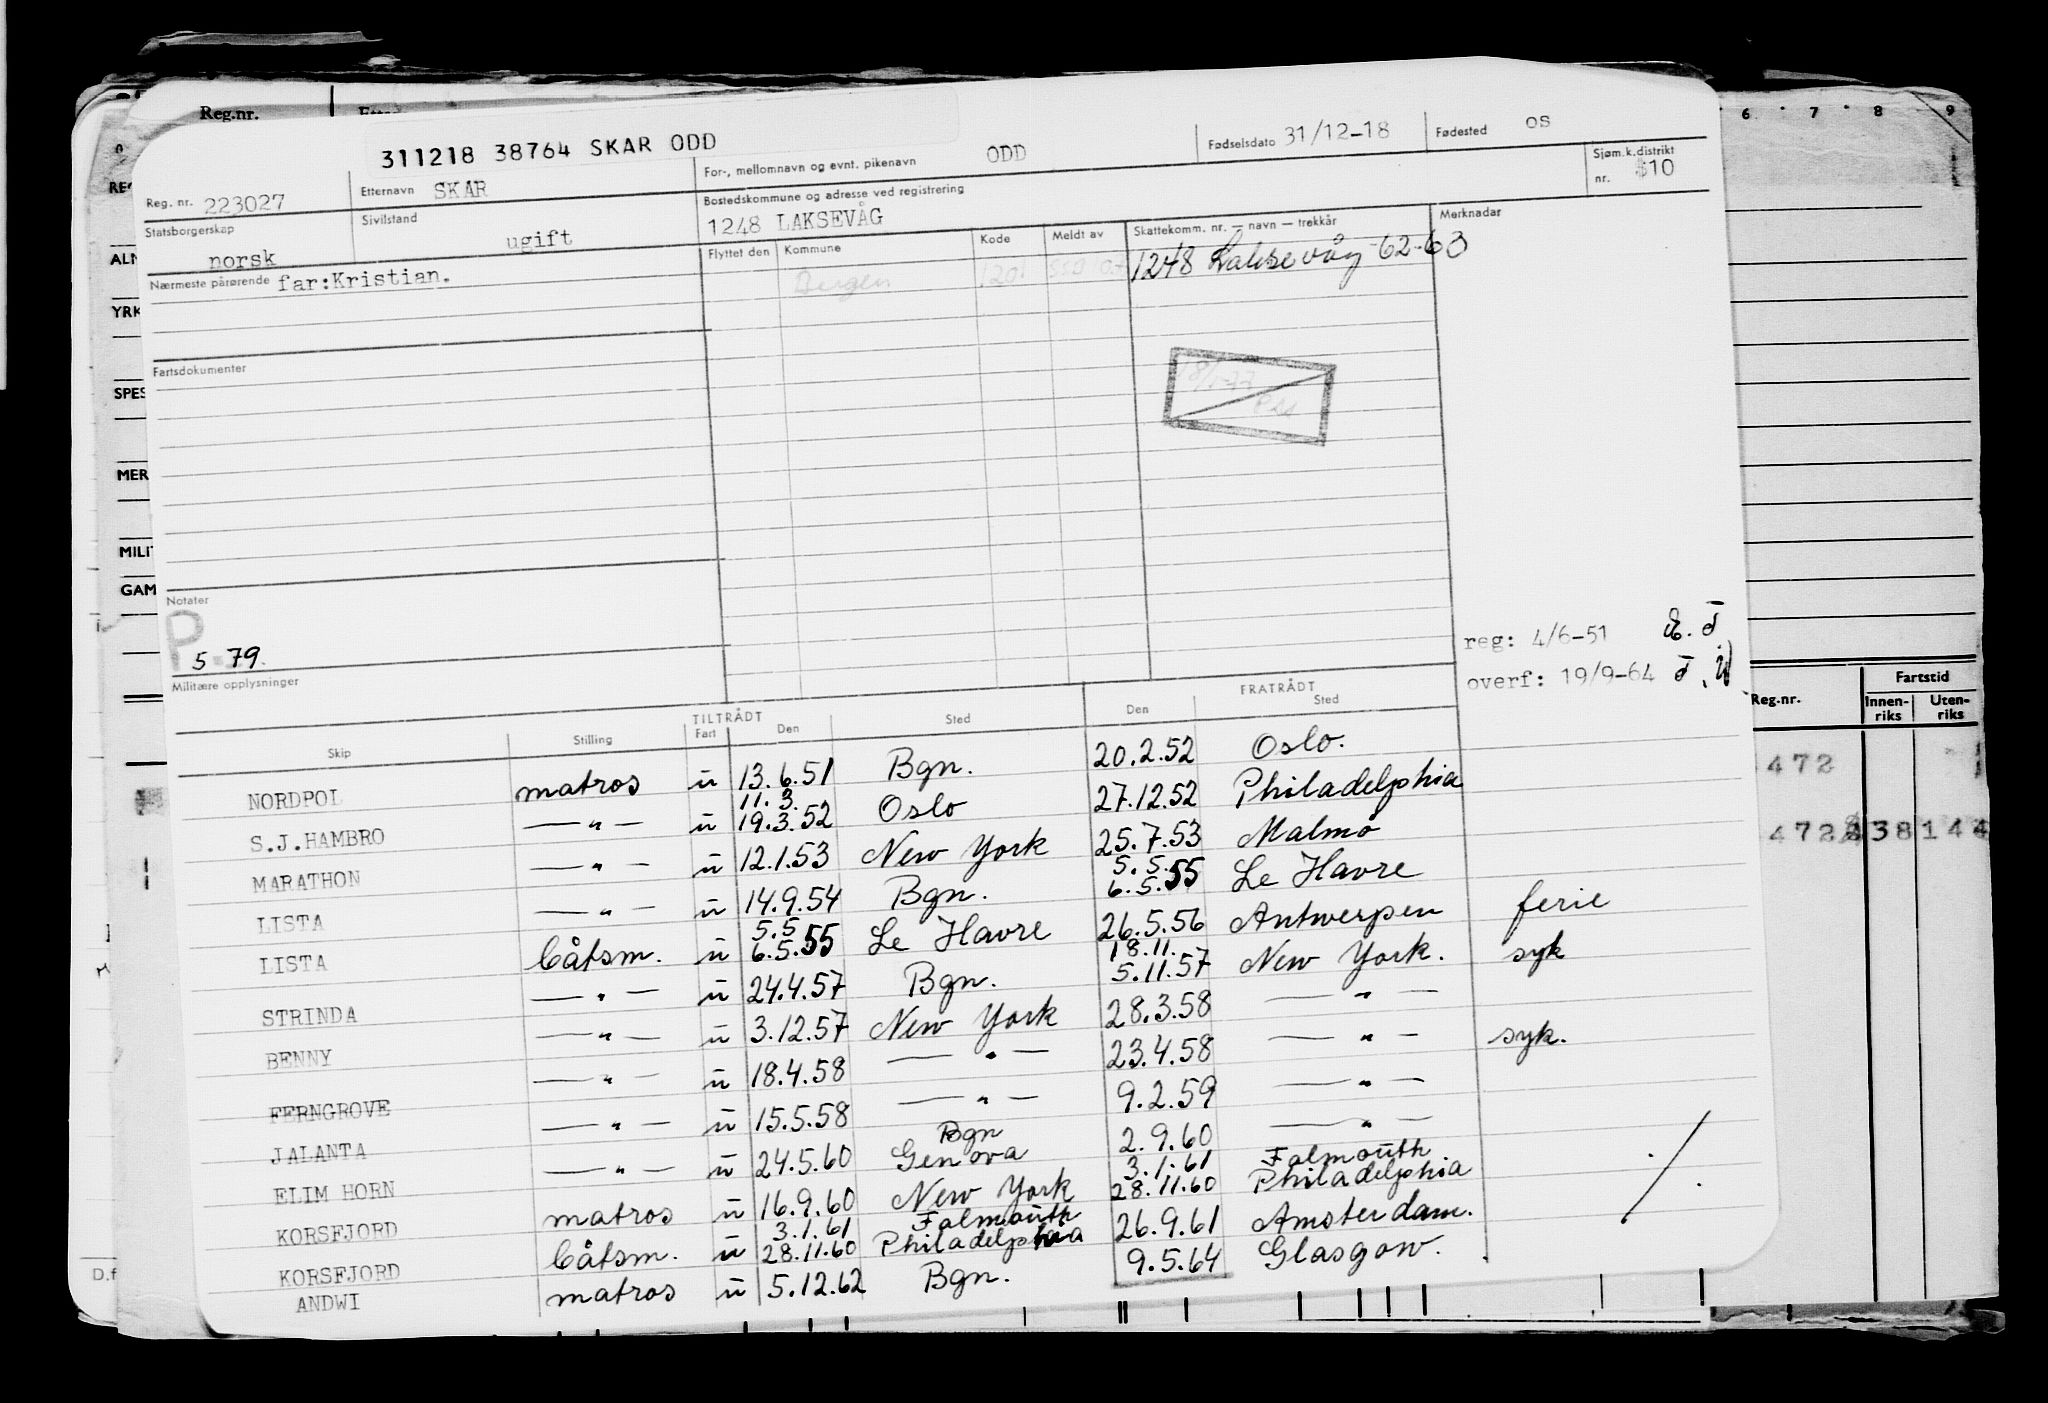 Reg.nr.
311218 38764 SKAR ODD
Reg. nr. 223027
Etternavn SKAR
For-, mellomnavn og evnt. pikenavn ODD
Fødselsdato 31/12-18
Fødested OS
Statsborgerskap norsk
Sivilstand ugift
Bostedskommune og adresse ved registrering
1248 LAKSEVÅG
Sjøm.k.distrikt nr. 810
Nærmeste pårørende far:Kristian.
Flyttet den Kommune Kode Meldt av Skattekomm. nr. — navn — trekkår Merknader
Bergen 1201 1248 Laksevåg-62-63
Fartsdokumenter
Notater
P
5 79.
Militære opplysninger
reg: 4/6-51
overf: 19/9-64
TILTRÅDT FRATRÅDT
Skip Stilling Fart Den Sted Den Sted
NORDPOL matros u 13.6.51 Bgn. 20.2.52 Oslo.
11.3.
S.J.HAMBRO — " — u 19.3.52 Oslo 27.12.52 Philadelphia
MARATHON — " — u 12.1.53 New York 25.7.53 Malmø
5.5.
LISTA — " — u 14.9.54 Bgn. 6.5.55 Le Havre
5.5
LISTA båtsm. u 6.5.55 Le Havre 26.5.56 Antwerpen ferie
18.11.
STRINDA — " — u 24.4.57 Bgn. 5.11.57 New York. syk
BENNY — " — u 3.12.57 New York 28.3.58 — " —
FERNGROVE — " — u 18.4.58 — " — 23.4.58 — " — syk.
JALANTA — " — u 15.5.58 — " — 9.2.59 — " —
Bgn
ELIM HORN — " — u 24.5.60 Genova 2.9.60 — " —
3.1.61 Falmouth
KORSFJORD matros u 16.9.60 New York 28.11.60 Philadelphia
3.1.61 Falmouth
KORSFJORD båtsm. u 28.11.60 Philadelphia 26.9.61 Amsterdam.
ANDWI matros u 5.12.62 Bgn. 9.5.64 Glasgow.
6 7 8 9
ALN
YRK
SPES
MER
MILI
GAM
D.f
Reg.nr. Fartstid
Innen-riks Uten-riks
472
472 38 144